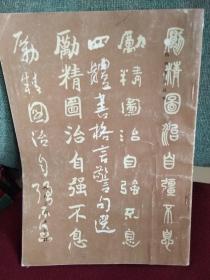 勵精圖治自彊不息
勵精圖治自強不息
四體書格言警句選
勵精圖治自强不息
勵精圖治自强不息